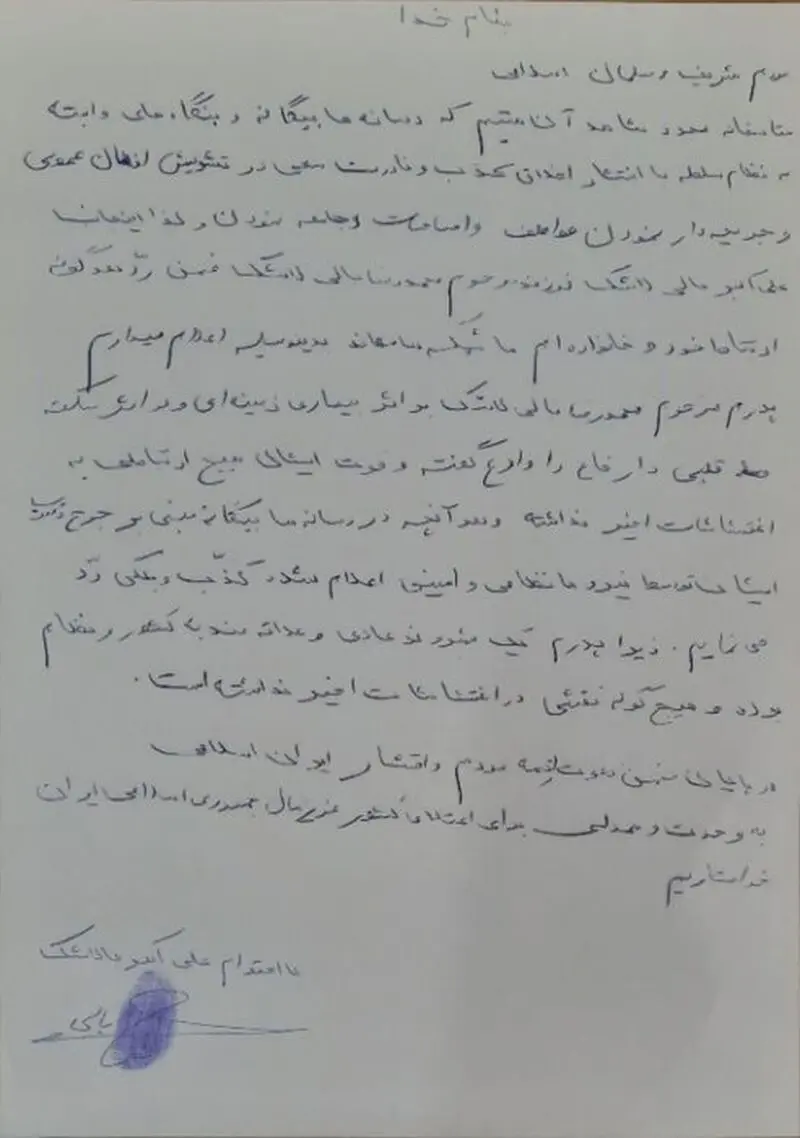 بنام خدا
مردم شریف و مسلمان
متاسفانه مجدد شاهد آن هستیم که رسانه ها بیگانه و بنگاه های وابسته
به نظام سلطه با انتشار کذب و نادرست سعی در تشویش اذهان عمومی
و جریحه دار نمودن عواطف و احساسات جامعه نمودن و لذا اینجانب
علی اکبر مالی لاشک فرزند مرحوم مالی لاشک ضمن رد هرگونه
ارتباط خود و خانواده ام با بدینوسیله اعلام میدارم
پدرم مرحوم مالی لاشک بر اثر بیماری زمینه ای و بر اثر سکته
قلبی دار فانی را وداع گفته و فوت ایشان هیچ ارتباطی به
اغتشاشات اخیر نداشته و هر آنچه در رسانه ها بیگانه مبنی بر
ایشان توسط نیرو ها نظامی و امنیتی اعلام شده کذب و بکلی رد
می نمایم. زیرا پدرم یک شهروند عادی و علاقه مند به کشور و نظام
بوده و هیچ گونه نقشی در اغتشاشات اخیر نداشته است.
در پایان ضمن دعوت همه مردم و اقشار ایران اسلامی
به وحدت و همدلی برای اعتلای کشور عزیزمان جمهوری اسلامی ایران
خواستاریم
با احترام علی اکبر مالی لاشک